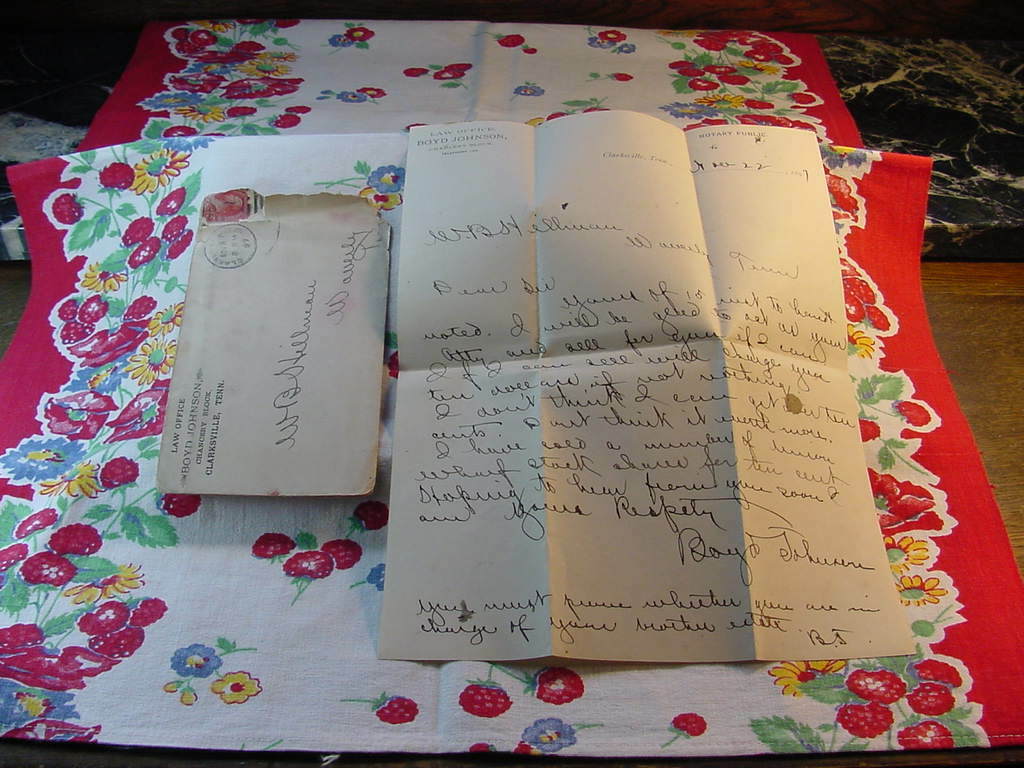 LAW OFFICE
BOYD JOHNSON,
CHANCERY BLOCK,
NOTARY PUBLIC.
Clarksville, Tenn.
22
W.B. Hillman
Waverly Tenn
Dear Sir Yours of 15 inst to hand
noted. I will be glad to act as your
and sell for you if I can
I can sell will charge you
ten dollars if not nothing.
I don't think I can get over ten
cents. Dont think it worth more.
I have sold a number of Union
Wharf stock shares for ten cent
Hoping to hear from you soon I
am Yours Respfty
Boyd Johnson
You must prove whether you are in
charge of your brother estate. B.J.
W B Hillman
Waverly
LAW OFFICE
BOYD JOHNSON,
CHANCERY BLOCK,
CLARKSVILLE, TENN.